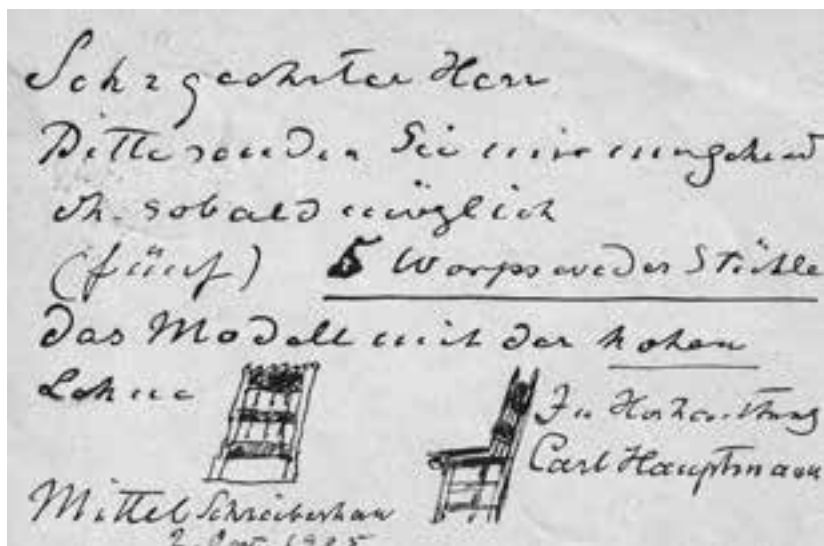 Sehr geehrter Herr
Bitte senden Sie mir umgehend
dh. sobald möglich
(fünf) 5 Worpsweder Stühle
das Modell mit der hohen
Lehne
In Hochachtung
Carl Hauptmann
Mittel Schreiberhau